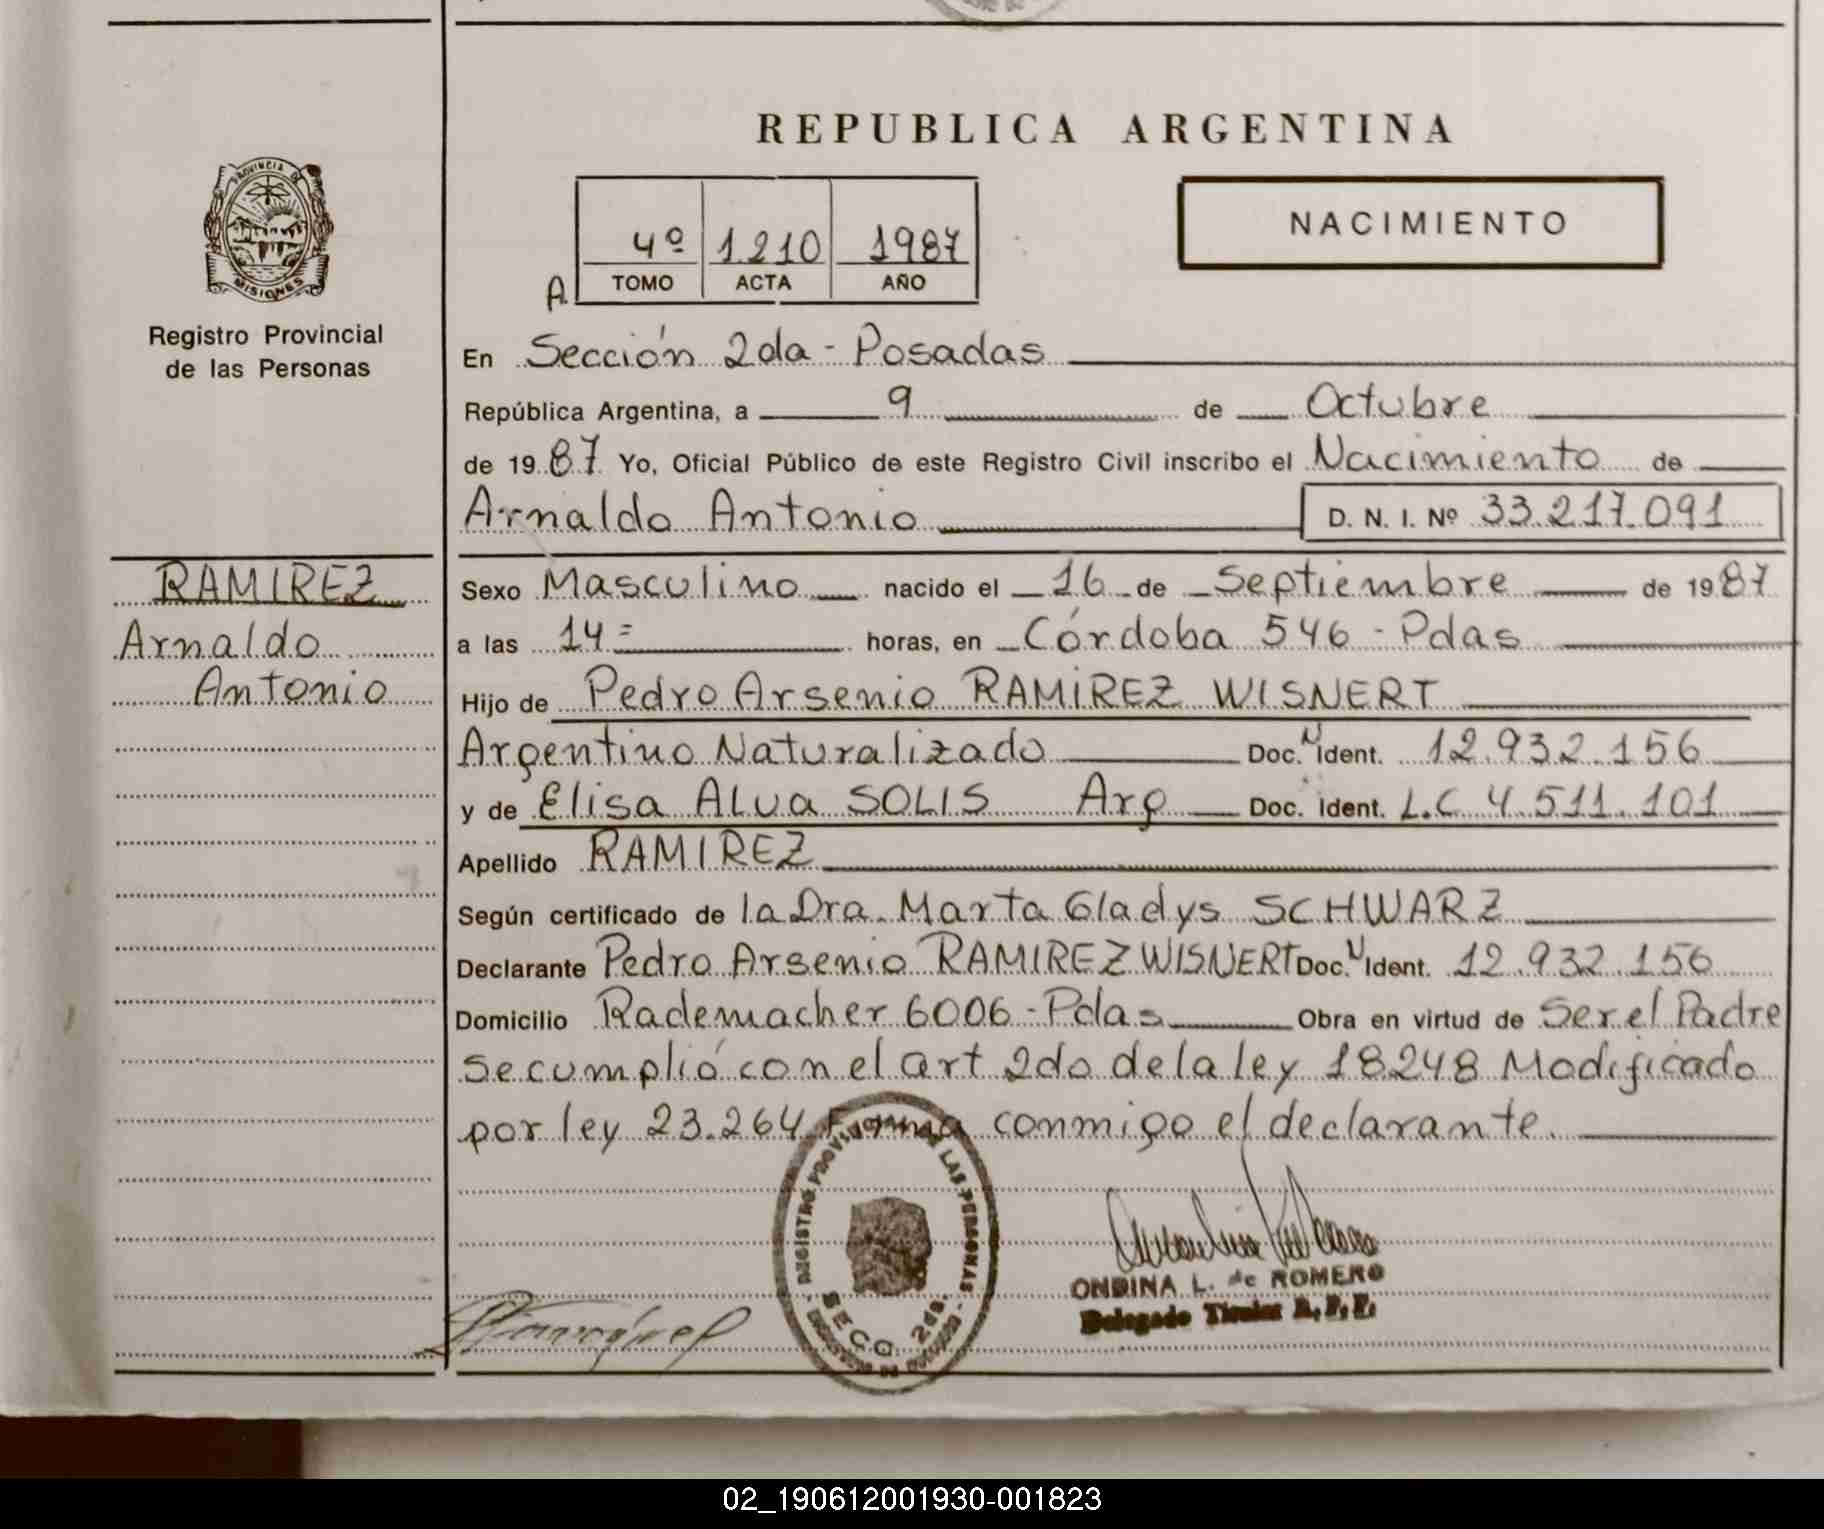 REPUBLICA ARGENTINA
PROVINCIA DE
MISIONES
Registro Provincial
de las Personas
4º 1.210 1987
A TOMO ACTA AÑO
NACIMIENTO
En Sección 2da - Posadas
República Argentina, a 9 de Octubre
de 1987 Yo, Oficial Público de este Registro Civil inscribo el Nacimiento de
Arnaldo Antonio D. N. I. Nº 33.217.091
RAMIREZ
Arnaldo
Antonio
Sexo Masculino nacido el 16 de Septiembre de 1987
a las 14= horas, en Córdoba 546 - Pdas
Hijo de Pedro Arsenio RAMIREZ WISNERT
Argentino Naturalizado Doc. N Ident. 12.932.156
y de Elisa ALVA SOLIS Arg Doc. Ident. L.C 4.511.101
Apellido RAMIREZ
Según certificado de la Dra. Marta Gladys SCHWARZ
Declarante Pedro Arsenio RAMIREZ WISNERT Doc. N Ident. 12.932.156
Domicilio Rademacher 6006 - Pdas Obra en virtud de Ser el Padre
se cumplió con el art 2do de la ley 18248 Modificado
por ley 23.264 Firma conmigo el declarante.
REGISTRO PROVINCIAL DE LAS PERSONAS
SECC. 2da.
ONDINA L. de ROMERO
Delegado Titular R.P.P.
02_190612001930-001823